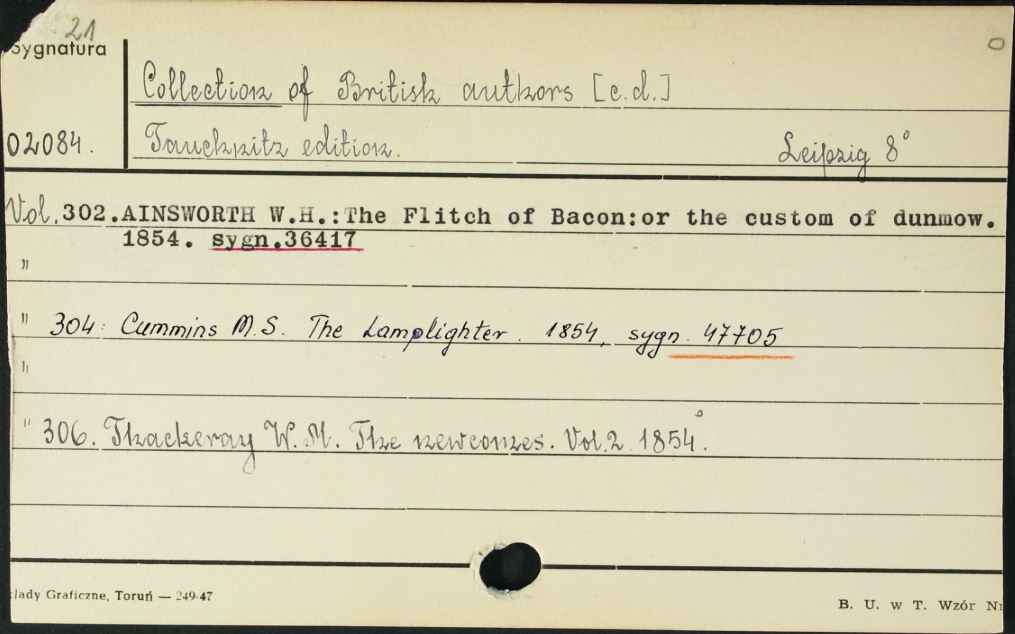 21
Sygnatura
Collection of British authors [c.d.]
02084. Tauchnitz edition. Leipzig 8°
Vol. 302. AINSWORTH W.H.:The Flitch of Bacon:or the custom of dunmow.
1854. sygn.36417
"
" 304: Cummins M.S. The Lamplighter. 1854, sygn. 47705
"
" 306. Thackeray W. M. The newcomes. Vol.2 1854.
łady Graficzne, Toruń — 249-47
B. U. w T. Wzór Nr